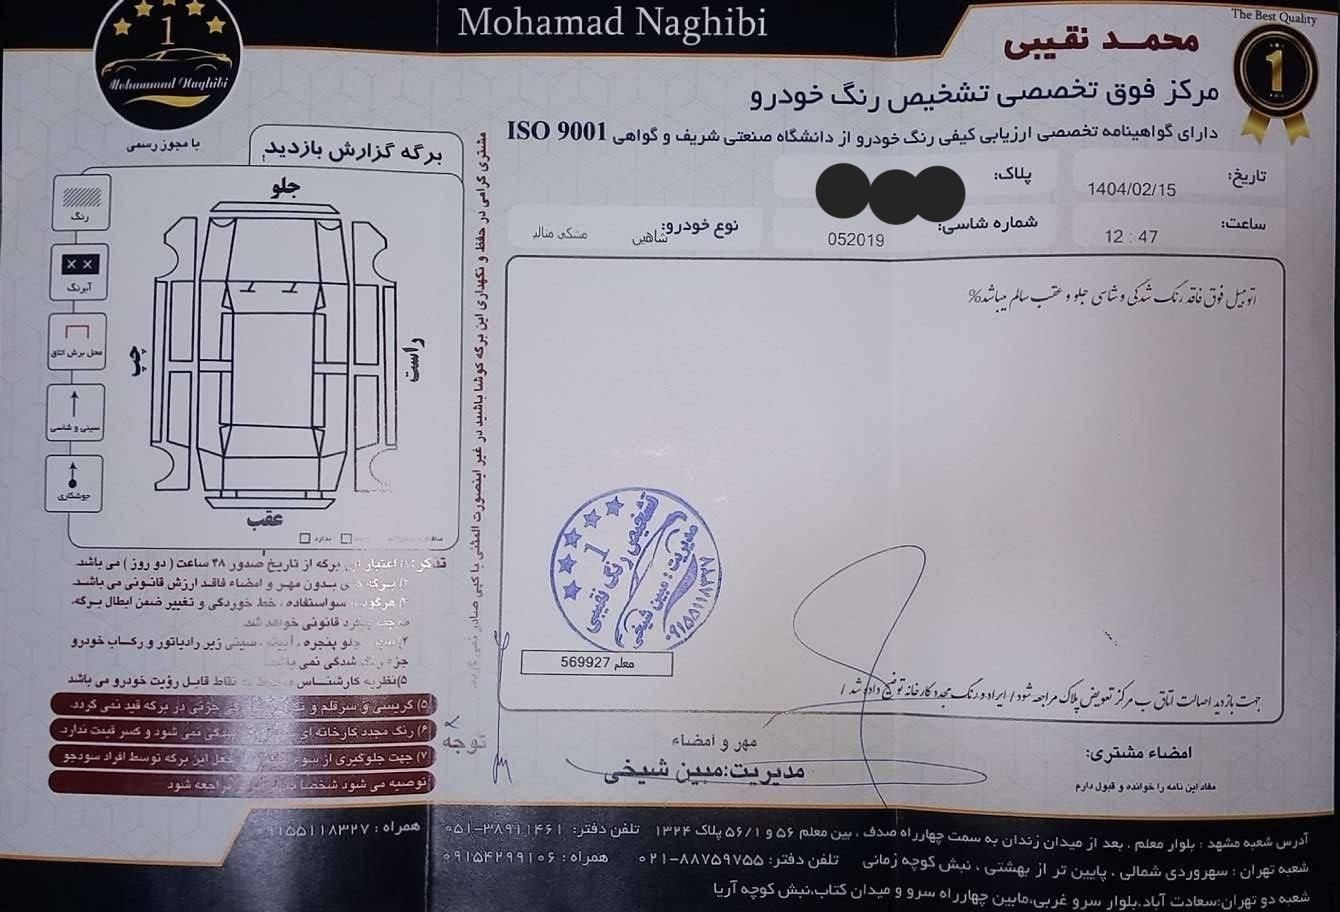 Mohamad Naghibi
The Best Quality
1
محمد نقیبی
مرکز فوق تخصصی تشخیص رنگ خودرو
دارای گواهینامه تخصصی ارزیابی کیفی رنگ خودرو از دانشگاه صنعتی شریف و گواهی ISO 9001
تاریخ: 1404/02/15
پلاک:
ساعت: 12 : 47
شماره شاسی: 052019
نوع خودرو: شاهین مشکی متالیـ
اتومبیل فوق فاقد رنگ شدگی و شاسی جلو و عقب سالم میباشد%
1
Mohammad Naghibi
با مجوز رسمی
برگه گزارش بازدید
جلو
راست
چپ
عقب
رنگ
X X
آبرنگ
محل برش اتاق
سینی و شاسی
جوشکاری
ندارد
مشتری گرامی در حفظ و نگهداری این برگه کوشا باشید در غیر اینصورت المثنی یا کپی صادر نمی گردد.
تذکر: ۱) اعتبار این برگه از تاریخ صدور ۴۸ ساعت ( دو روز ) می باشد.
بدون مهر و امضاء فاقد ارزش قانونی می باشد.
هرگونه سواستفاده ، خط خوردگی و تغییر ضمن ابطال برگه،
قانونی خواهد شد.
جلو پنجره ، آیینه ، سینی زیر رادیاتور و رکاب خودرو
جزء رنگ شدگی نمی باشد.
۵) نظریه کارشناس نقاط قابل رؤیت خودرو می باشد
۵) گریسی و سرقلم و جزئی در برگه قید نمی گردد.
۶) رنگ مجدد کارخانه ای نمی شود و کسر قیمت ندارد.
۷) جهت جلوگیری از جعل این برگه توسط افراد سودجو
توصیه می شود شخصا مراجعه شود
توجه
1
تشخیص رنگ نقیبی
مدیریت : مبین شیخی
۰۹۱۵۵۱۱۸۳۲۷
معلم 569927
جهت بازدید اصالت اتاق ب مرکز تعویض پلاک مراجعه شود / ایراد و رنگ مجدد کارخانه توضیح داده شد /
مهر و امضاء
مدیریت: مبین شیخی
امضاء مشتری:
مفاد این نامه را خوانده و قبول دارم
آدرس شعبه مشهد : بلوار معلم ، بعد از میدان زندان به سمت چهارراه صدف ، بین معلم ۵۶ و ۵۶/۱ پلاک ۱۳۲۴ تلفن دفتر: ۳۸۹۱۱۴۶۱-۰۵۱ همراه : ۰۹۱۵۵۱۱۸۳۲۷
شعبه تهران : سهروردی شمالی ، پایین تر از بهشتی ، نبش کوچه زمانی تلفن دفتر: ۸۸۷۵۹۷۵۵-۰۲۱ همراه : ۰۹۱۵۴۲۹۹۱۰۶
شعبه دو تهران:سعادت آباد،بلوار سرو غربی،مابین چهارراه سرو و میدان کتاب،نبش کوچه آریا